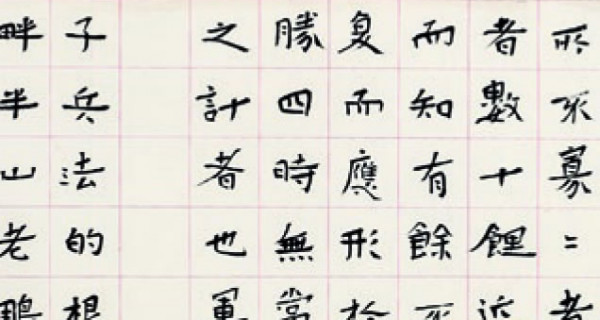 所不寡〻者
者數十近
而知有餘不
复而應形於
勝四時無常
之計者也軍
子兵法的根
畔半山老